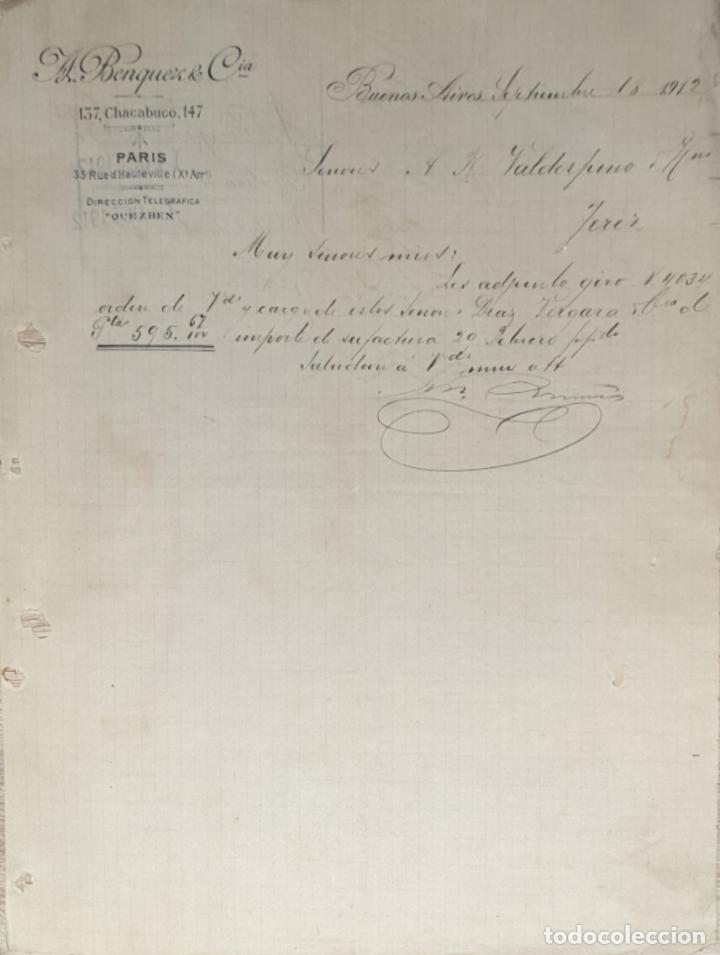 A. Benquez & Cia
137, Chacabuco, 147
PARIS
33 Rue d'Hauteville (Xe Arrt)
DIRECCION TELEGRAFICA
"QUEZBEN"
Buenos Aires, Septiembre 18 1912
Señores A R Valdespino y Hno
Jerez
Muy Señores mios:
Les adjunto giro Nº 4034
orden de Vds y cargo de estos Señores Diaz Vergara y Cia de
Pta 595.67/100 importe de su factura 29 Febrero ppdo
Saludan á Vds muy att
todocoleccion.net